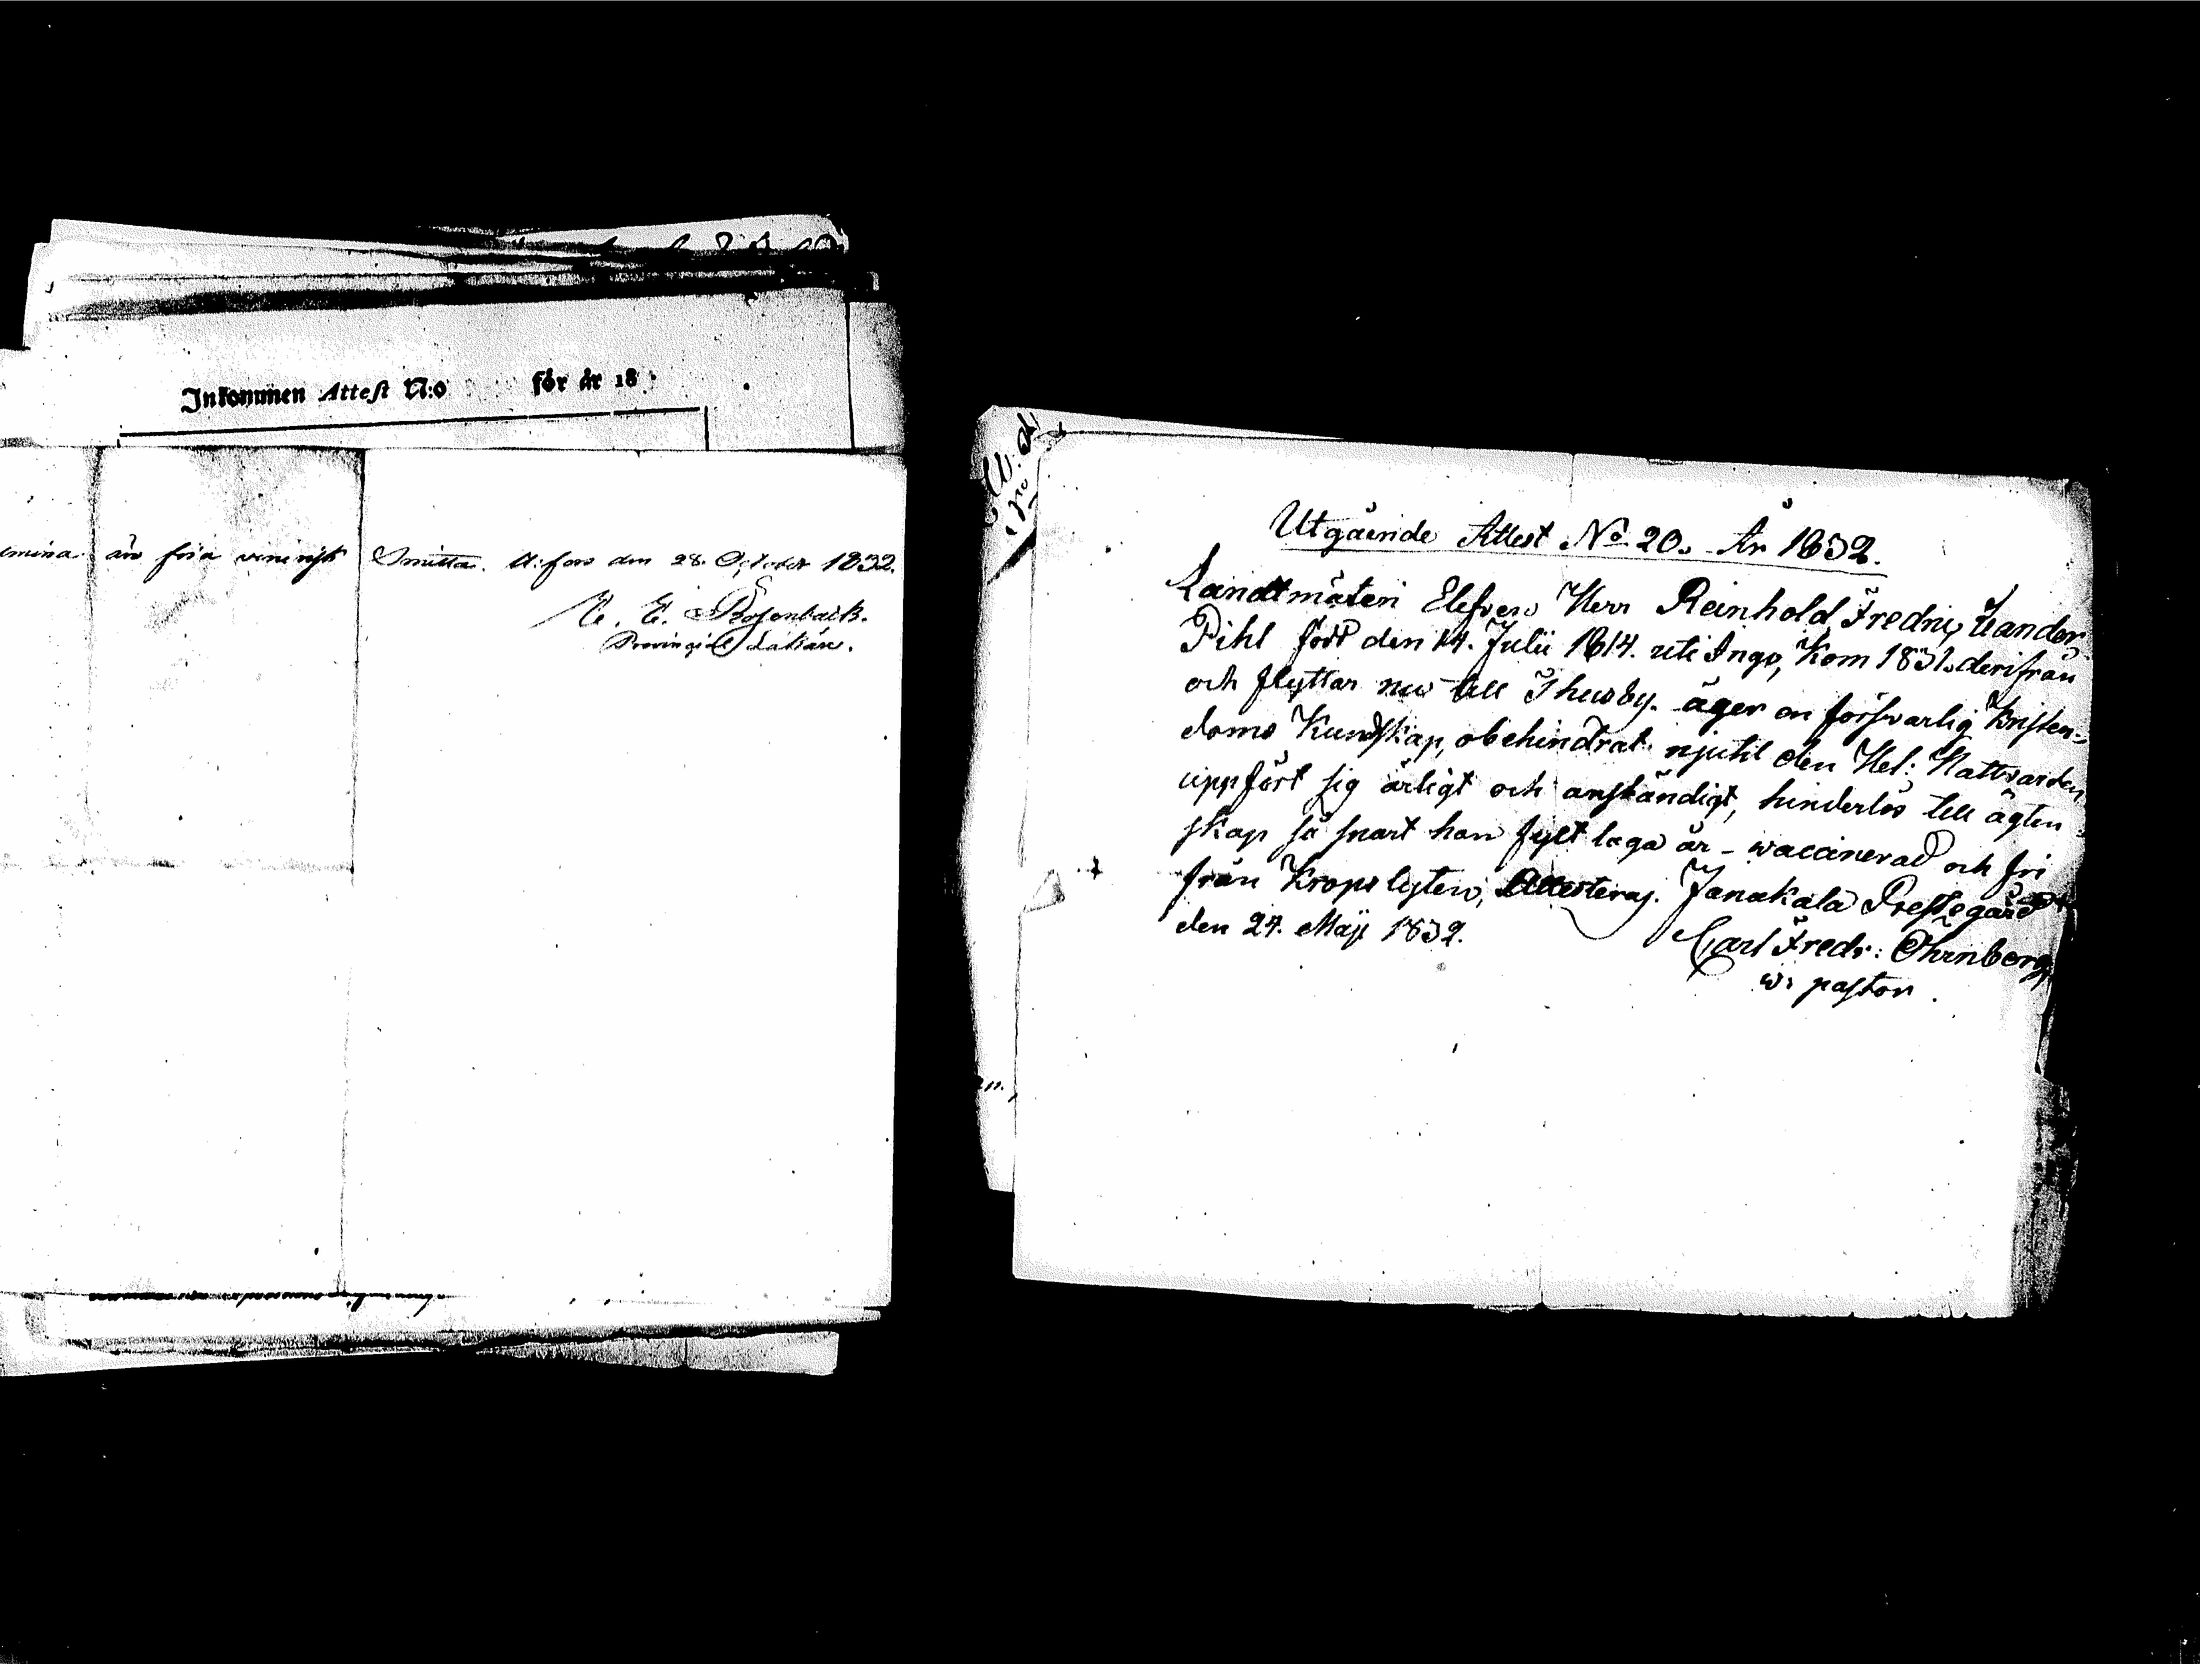 Inkommen Attest N:o för år 18
äro fria venerisk Smitta. H:fors den 28. October 1832.
Provincial Läkare.
Utgående Attest No. 20. År 1832.
Landtmäteri Elefven Herr Reinhold Fredric Leander
Pihl född den 14. Julii 1814. uti Ingo, Kom 1831. derifrån
och flyttar nu till Thusby. äger en försvarlig Kristen-
doms Kundskap, obehindrat njutit den Hel: Nattvarden
uppfört sig ärligt och anständigt, hinderlös till ägten-
skap så snart han fylt laga år – waccinerad och fri
från Kropslyten, Attesteras. Janakala Prestegård
den 24. Maji 1832.
Carl Fredr: Öhrnberg
w: pastor.